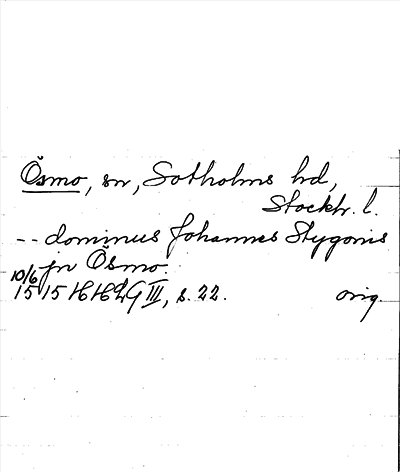 Ösmo, sn, Sotholms hd,
Stockh. l.
-- dominus Johannes Stygonis
jn Ösmo.
10/6
1515 HH2G III, s. 22. orig.